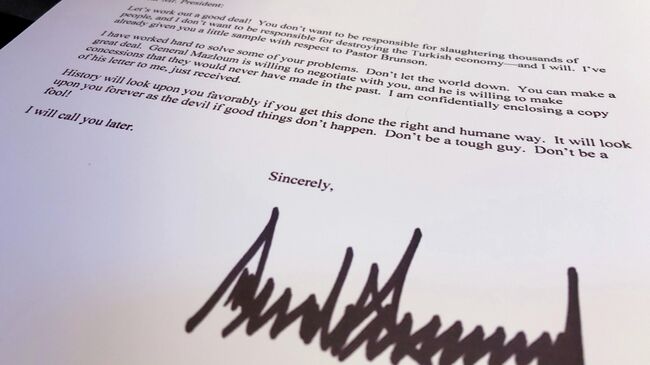 Mr. President:
Let's work out a good deal! You don't want to be responsible for slaughtering thousands of
people, and I don't want to be responsible for destroying the Turkish economy—and I will. I've
already given you a little sample with respect to Pastor Brunson.
I have worked hard to solve some of your problems. Don't let the world down. You can make a
great deal. General Mazloum is willing to negotiate with you, and he is willing to make
concessions that they would never have made in the past. I am confidentially enclosing a copy
of his letter to me, just received.
History will look upon you favorably if you get this done the right and humane way. It will look
upon you forever as the devil if good things don't happen. Don't be a tough guy. Don't be a
fool!
I will call you later.
Sincerely,